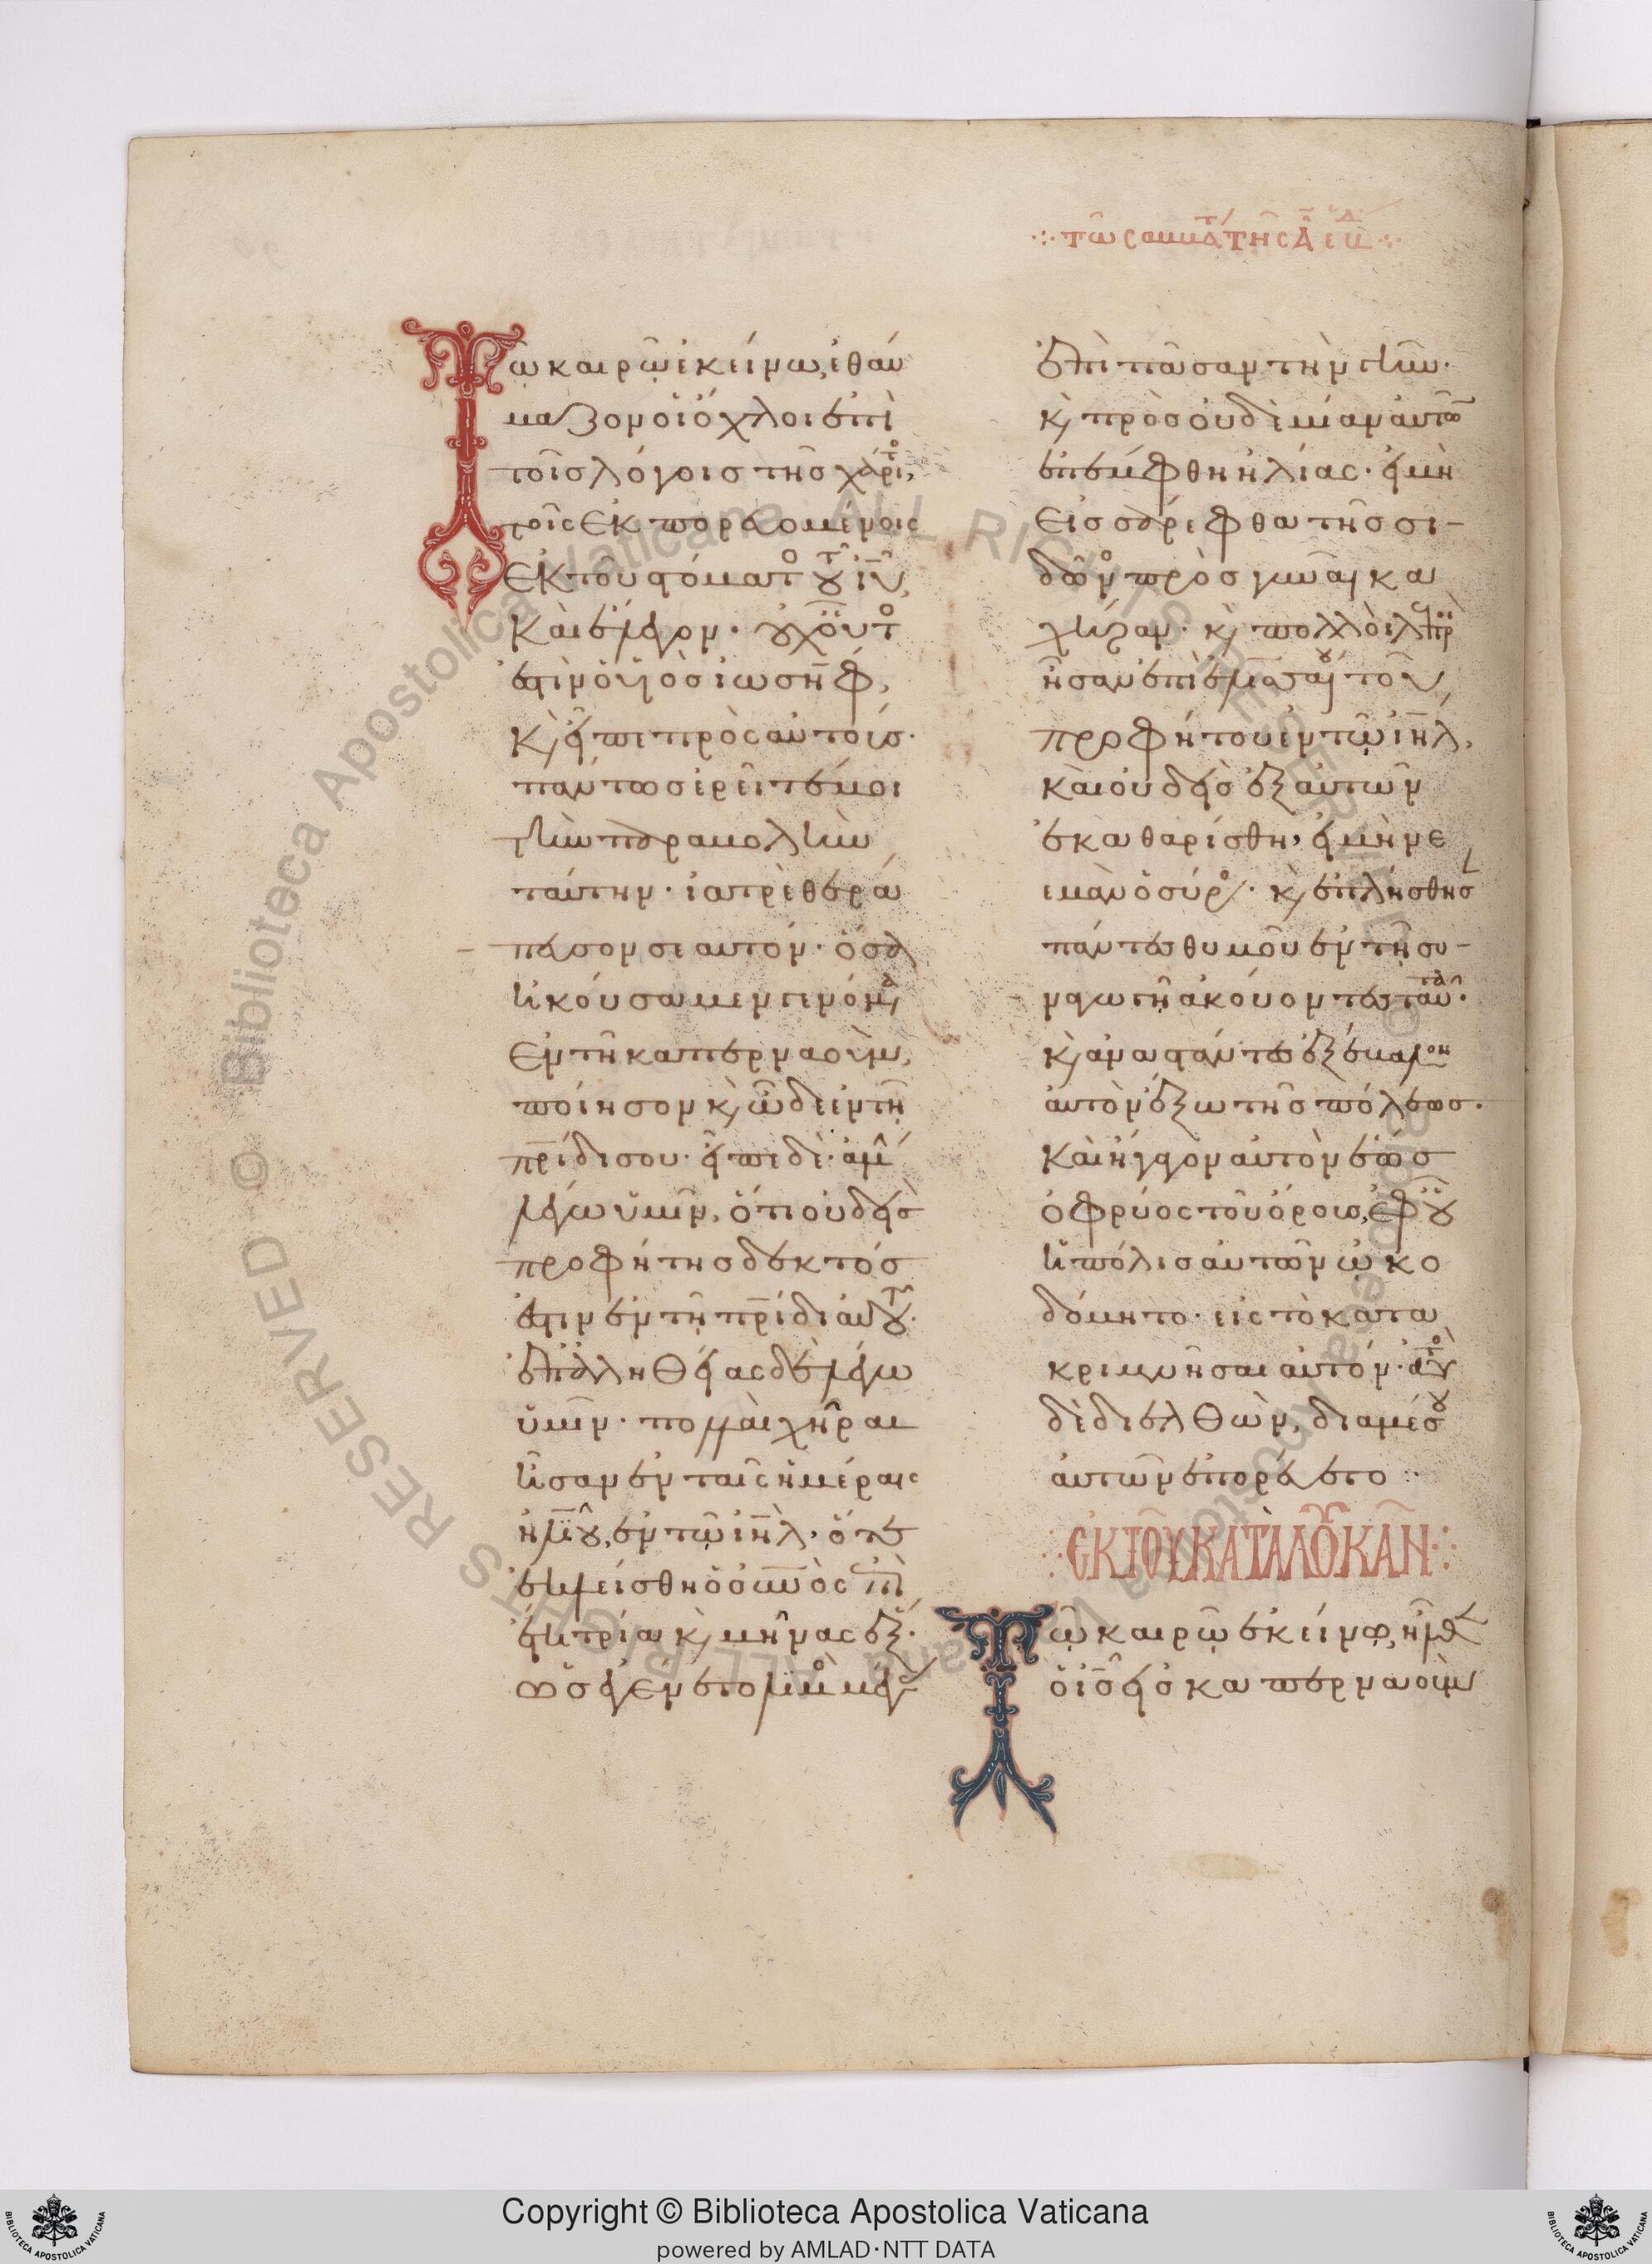 τῶ σαμμάτ τῆς Α ἑβδ
Τῶ καιρῶ ἐκείνω, ἐθαύ
μαζον οἱ ὄχλοι ἐπὶ
τοῖσ λόγοισ τῆσ χάριτο,
τοῖς ἐκπορευομένοις
ἐκ τοῦ στόματο τοῦ ιυ,
καὶ ἔλεγον· οὐχ οὗτο
ἐστὶν ὁ υἱὸσ ἰωσὴφ,
κ εἶπε πρὸς αὐτούσ·
πάντωσ ἐρεῖτέ μοι
τὴν παραβολὴν
ταύτην· ἰατρὲ θερά
πευσον σεαυτόν· ὅσα
ἠκούσαμεν γενόμενα
ἐν τῆ καπερναοὺμ,
ποίησον κ ὧδε ἐν τῆ
πρίδι σου· εἶπε δὲ· ἀμὴ
λέγω ὑμῖν, ὅτι οὐδεὶσ
προφήτησ δεκτόσ
ἐστιν ἐν τῆ πρίδι αὐτοῦ·
ἐπ ἀληθείας δὲ λέγω
ὑμῖν· πολλαὶ χῆραι
ἦσαν ἐν ταῖς ἡμέραις
ἠλιοῦ, ἐν τῶ ιηλ, ὅτε
ἐκλείσθη ὁ οὐνὸς ἐπὶ
ἔτη τρία κ μῆνας ἕξ·
ὡσ ἐγένετο λιμὸ μέγας
ἐπὶ πᾶσαν τὴν γῆν·
κ πρὸσ οὐδεμίαν αὐτῶ
ἐπέμφθη ἠλίας· εἰ μὴ
εἰσ σάρεφθα τῆσ σι-
δῶνο πρὸσ γυναῖκα
χήραν· κ πολλοὶ λεπροὶ
ἦσαν ἐπὶ ἐλισσαίου τοῦ
προφήτου ἐν τῶ ιηλ,
καὶ οὐδεὶσ ἐξ αὐτῶν
ἐκαθαρίσθη, εἰ μὴ νε
εμὰν ὁ σύρο· κ ἐπλήσθησ
πάντεσ θυμοῦ ἐν τῆ συ-
ναγωγῆ ἀκούοντεσ ταῦτα·
κ ἀναστάντεσ ἐξέβαλον
αὐτὸν ἔξω τῆσ πόλεωσ·
καὶ ἤγαγον αὐτὸν ἕωσ
ὀφρύος τοῦ ὄρουσ, ἐφ οὗ
ἡ πόλισ αὐτῶν ὠκο
δόμητο· εἰς τὸ κατα
κριμνῆσαι αὐτόν· αὐτὸ
δὲ διελθὼν, διαμέσου
αὐτῶν ἐπορεύετο
ἐκ τοῦ κατὰ λουκᾶν
Τῶ καιρῶ ἐκείνω, ἦλθεν
ὁ ισ εἰσ καπερναοὺμ
Copyright © Biblioteca Apostolica Vaticana
powered by AMLAD·NTT DATA